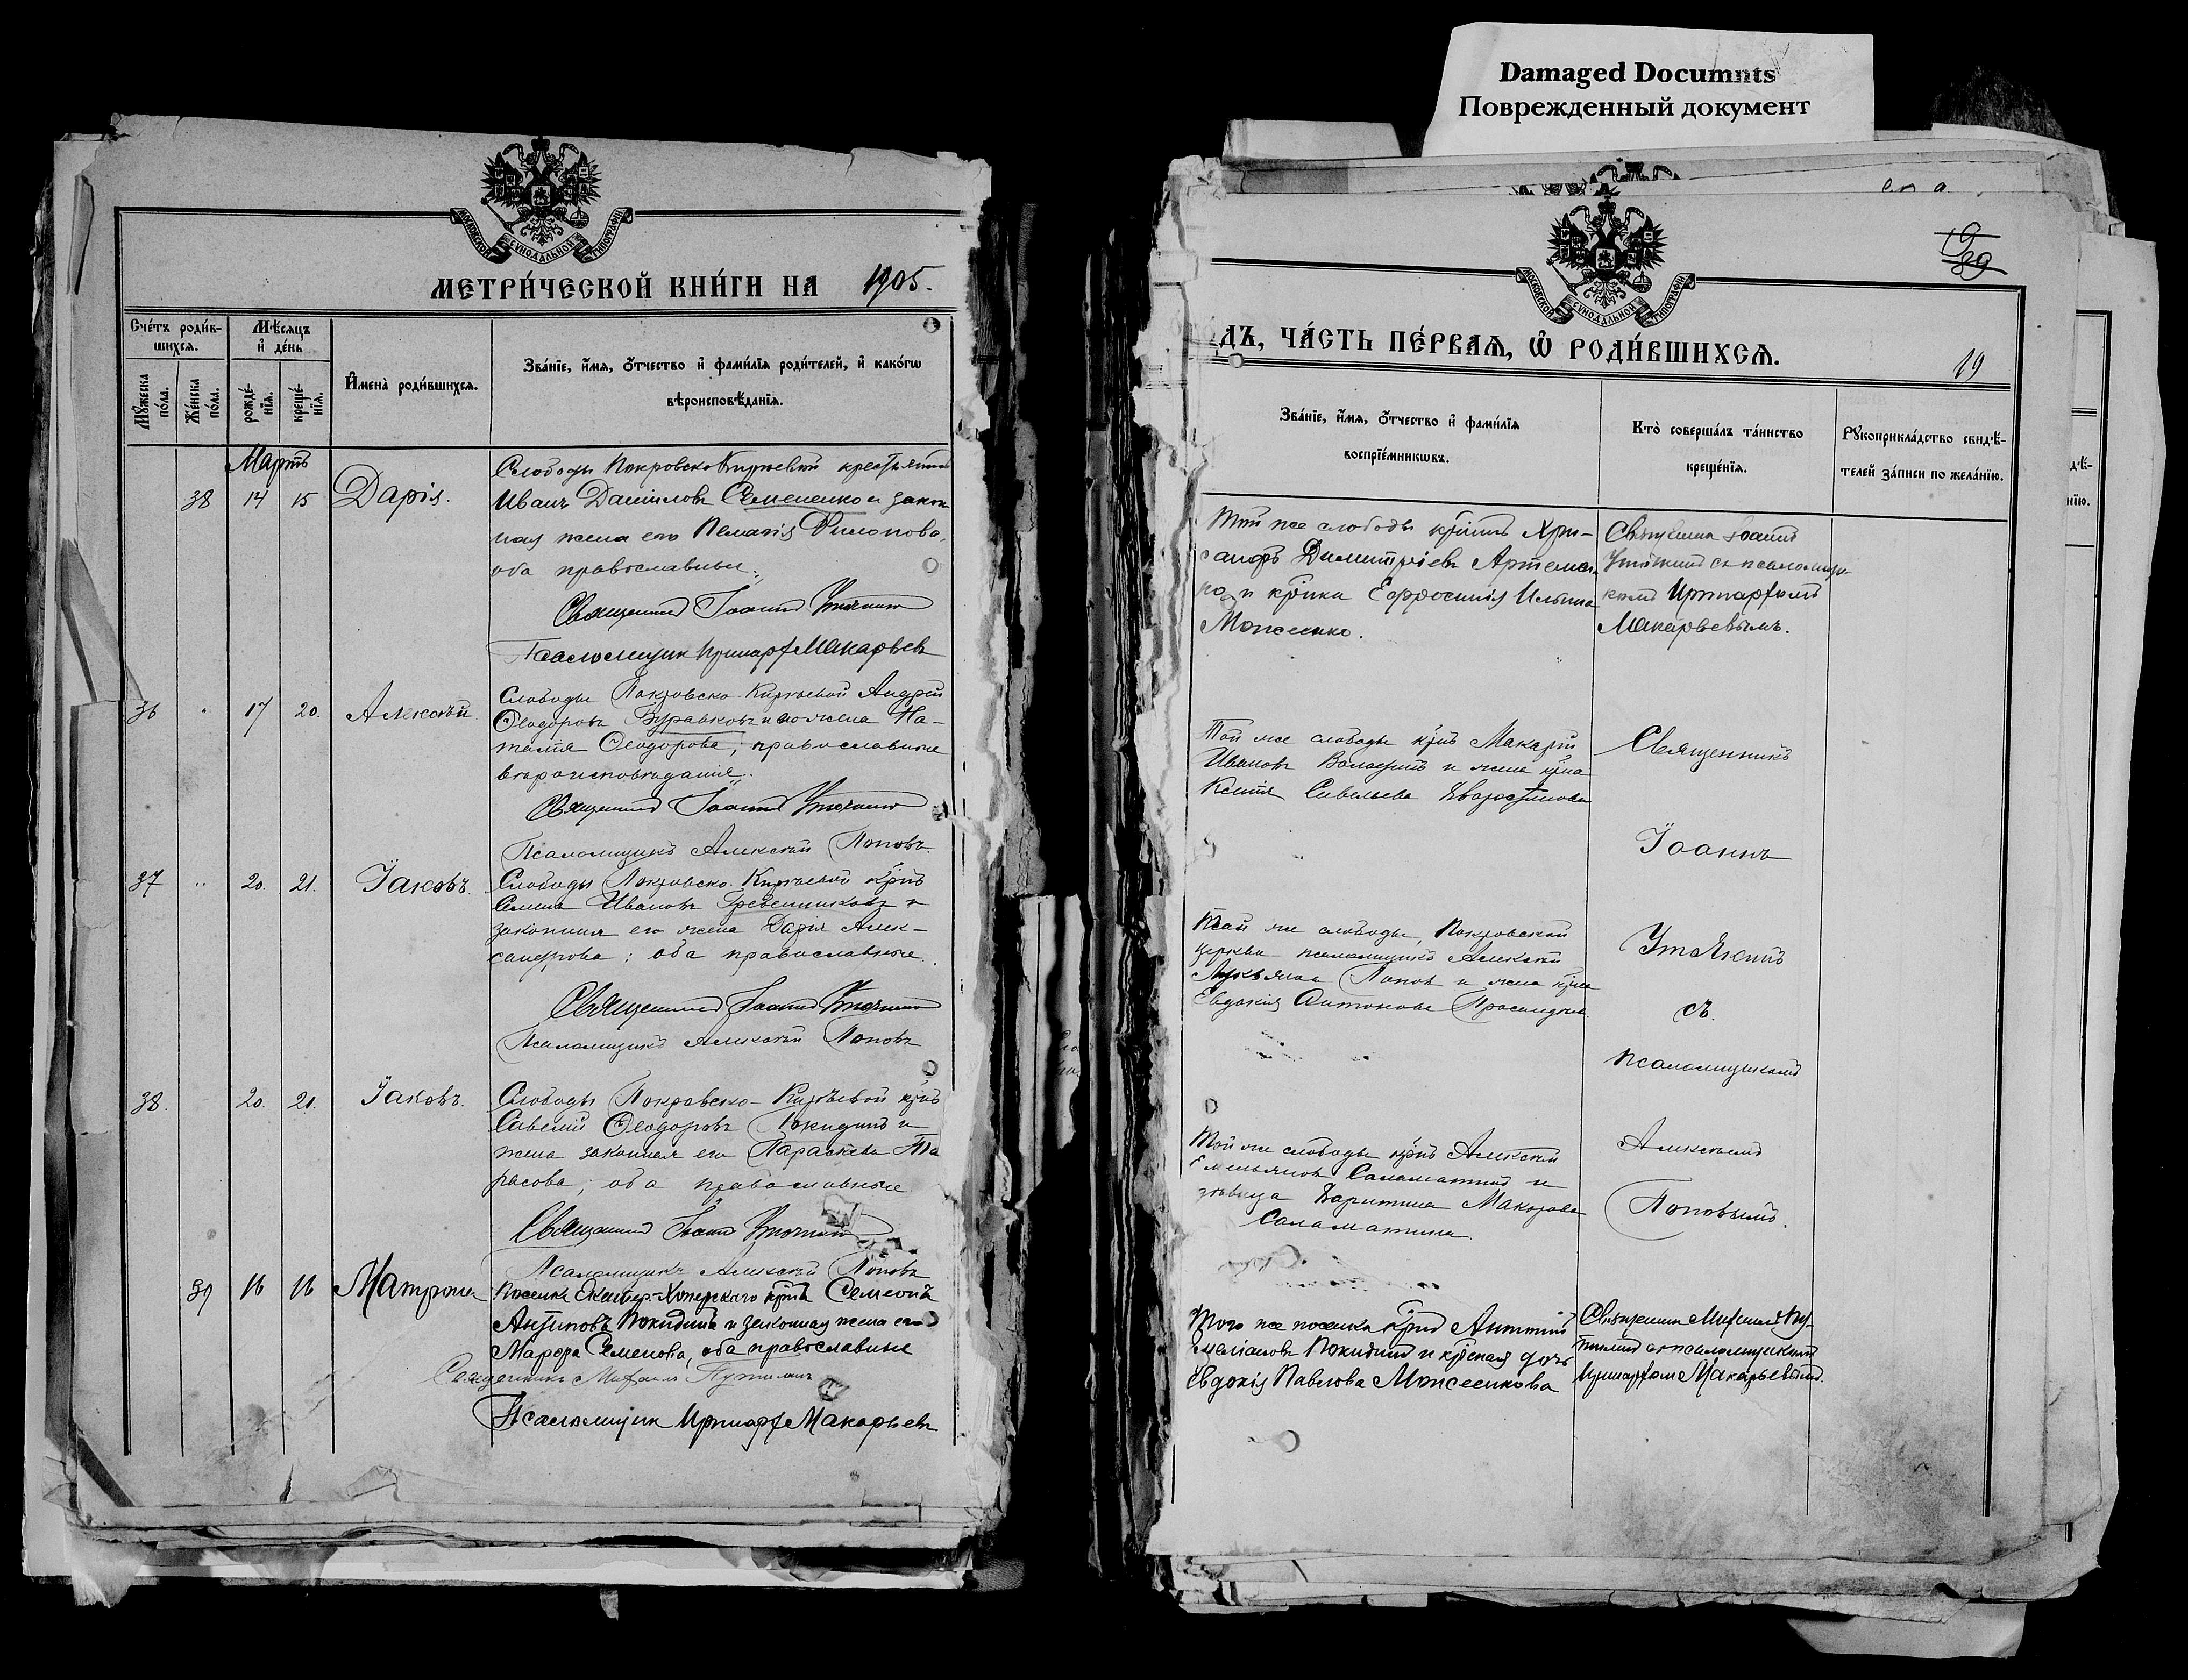 Damaged Documnts
Поврежденный документ
МОСКОВСКОЙ СѴНОДАЛЬНОЙ ТИПОГРАФІИ
МЕТРИ́ЧЕСКОЙ КНИ́ГИ НА 1905.
Сче́тъ роди́в-
шихсѧ.
Мѣ́сѧцъ
и҆ де́нь
И҆мена̀ роди́вшихсѧ.
Зва́нїе, и҆́мѧ, ѻ҆́тчество и҆ фами́лїѧ роди́телей, и҆ како́гѡ
вѣроисповѣ́данїѧ.
Мꙋ́жеска
по́ла.
Же́нска
по́ла.
рожде́-
нїѧ.
креще́-
нїѧ.
Мартъ
38 14 15 Дарія.
Слободы Покровско-Киреевой крестьянинъ
Иванъ Даніиловъ Семененко и закон
ная жена его Пелагія Филипова,
оба православные.
Священник Іоанн
Псаломщик Иринарх Макарьев
36 17 20. Алексѣй.
Слободы Покровско-Киреевой Андрей
Ѳеодоровъ Журавковъ и его жена На-
талія Ѳеодорова, православнаго
вѣроисповѣданія.
Священник Іоанн
Псаломщикъ Алексѣй Поповъ
37 " 20. 21. Іаковъ.
Слободы Покровско-Киреевой крнъ
Семенъ Ивановъ Гребенниковъ и
законная его жена Дарія Алек-
сандрова; оба православные.
Священник Іоанн
Псаломщикъ Алексѣй Поповъ
38. 20. 21. Іаковъ.
Слободы Покровско-Киреевой крнъ
Савелій Ѳеодоровъ Покидинъ и
жена законная его Параскева Та
расова; оба православные
Священник Іоанн
Псаломщикъ Алексѣй Поповъ
39 16 16 Матрона
Поселка Екатер-Хоперскаго крнъ Семеонъ
Антиповъ Покидинъ и законная жена его
Марфа Семенова, оба православные
Священникъ Михаилъ
Псаломщик Иринарх Макарьев
МОСКОВСКОЙ СѴНОДАЛЬНОЙ ТИПОГРАФІИ
19
ДЪ, ЧА́СТЬ ПЕ́РВАѦ, Ѽ РОДИ́ВШИХСѦ.
Зва́нїе, и҆́мѧ, ѻ҆́тчество и҆ фами́лїѧ
воспрїе́мникѡвъ.
Кто̀ соверша́лъ та́инство
креще́нїѧ.
Рꙋкоприкла́дство свидѣ́-
телей за́писи по жела́нїю.
Той же слободы крнинъ Хри-
санфъ Димитріевъ Артемен-
ко и крнка Евфросинія Ильина
Моисеенко.
Священник Іоаннъ
Утѣхинъ съ псаломщи-
комъ Иринархомъ
Макарьевымъ.
Той же слободы крнъ Макарій
Ивановъ и жена крна
Ксенія Савельева
Священникъ
Іоаннъ
Той же слободы, Покровской
церкви псаломщикъ Алексѣй
Лукьяновъ Поповъ и жена крна
Евдокія Антонова
съ.
псаломщикомъ
Той же слободы крнъ Алексѣй
Емельяновъ Саламатинъ и
дѣвица Харитина Макарова
Саламатина.
Алексѣемъ
Поповымъ.
Того же поселка крнъ Антоній
Емеліановъ Покидинъ и крнская дочь
Евдокія Павлова Моисеенкова
Священник Михаилъ Пу-
тилинъ съ псаломщикомъ
Иринархом Макарьевымъ.